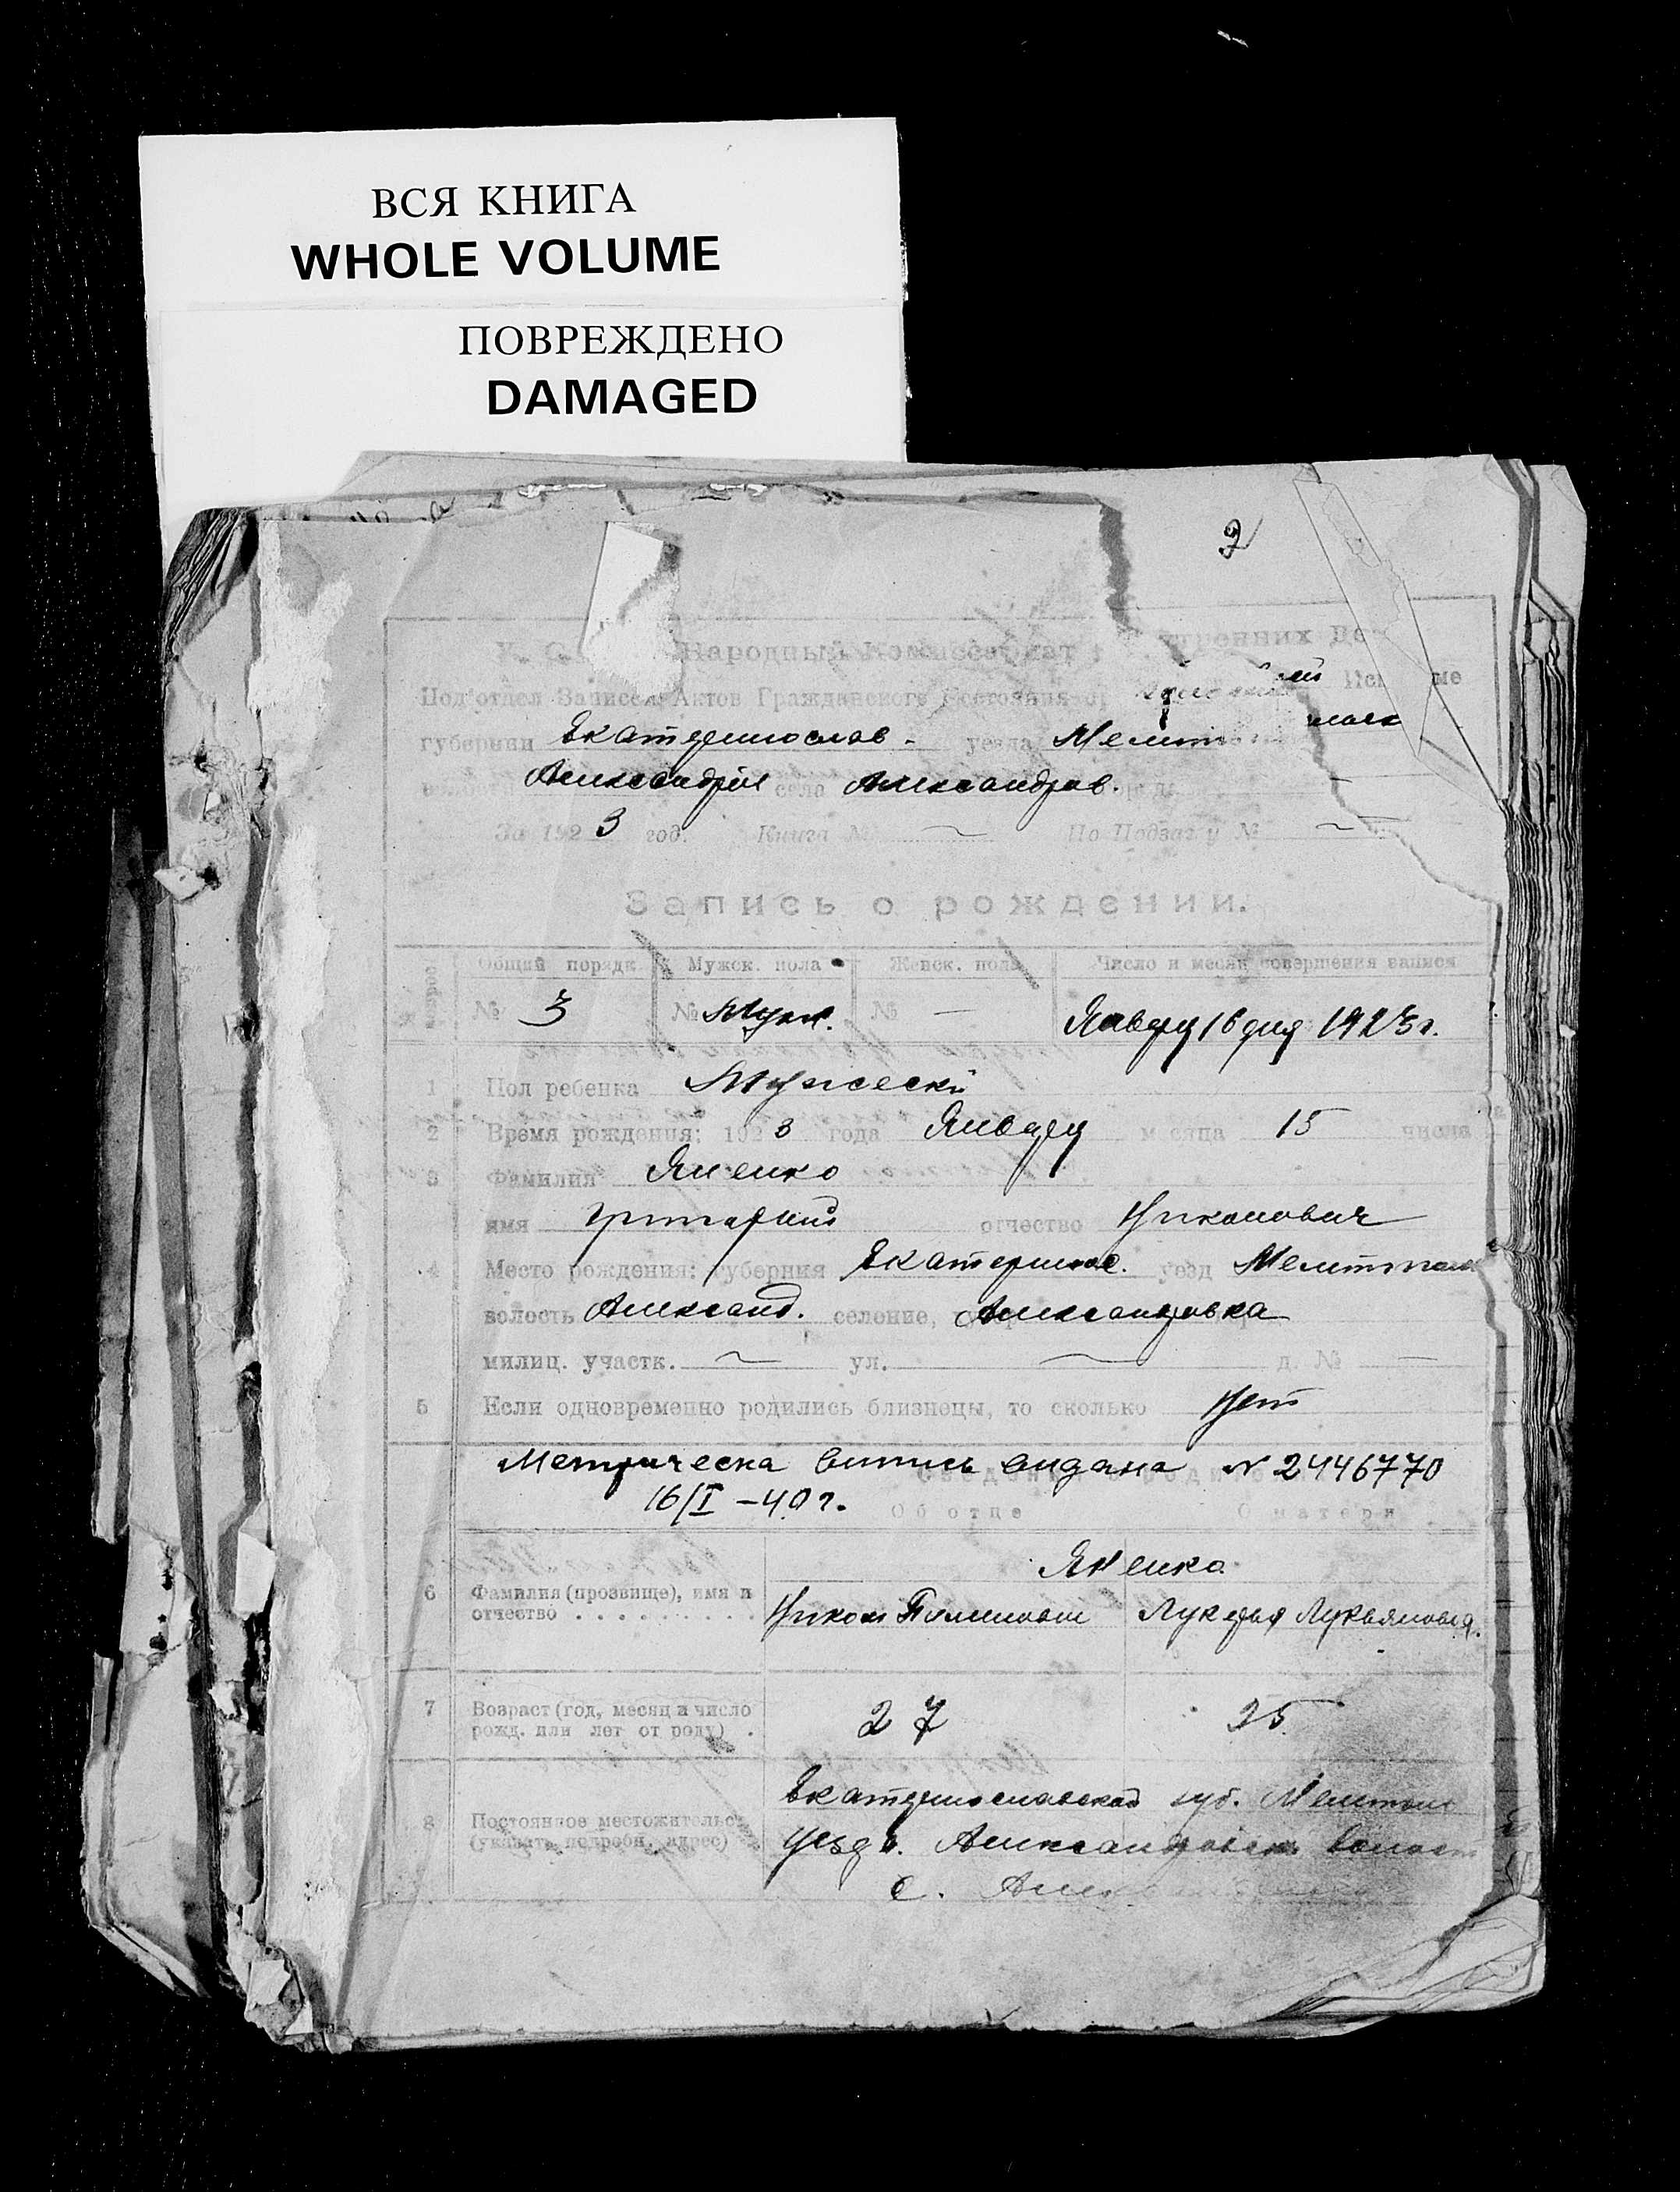 ВСЯ КНИГА
WHOLE VOLUME
ПОВРЕЖДЕНО
DAMAGED
2
У. С. Народный Комиссариат
Под'отдел Записей Актов Гражданского Состояния
губернии Екатеринослав. уезда Мелит
село Александров.
За 1923 год. Книга № По Подзаг у №
Запись о рождении.
Общий порядк Мужск. пола Женск. пола Число и месяц совершения записи
№ 3 № Муж. № — Январу 16 дня 1923 г.
1 Пол ребенка
2 Время рождения: 1923 года Январу месяца 15 числа
3 Фамилия Яненко
имя отчество Никонович
4 Место рождения: губерния Екатеринос. уезд
волость Александ. селение, Александровка
милиц. участк. ул. д. № —
5 Если одновременно родились близнецы, то сколько Нет
Метрическа випись видана № 2446770
16/I – 40 г.
Об отце О матери
Яненко
6 Фамилия (прозвище), имя и
отчество Никон Лукерья Лукьяновна.
7 Возраст (год, месяц и число
рожд. или лет от роду) . 27 25
8 Постоянное местожительс
(указать подробн. адрес) Екатеринославской губ.
Уезд. Александровск. волост
с.